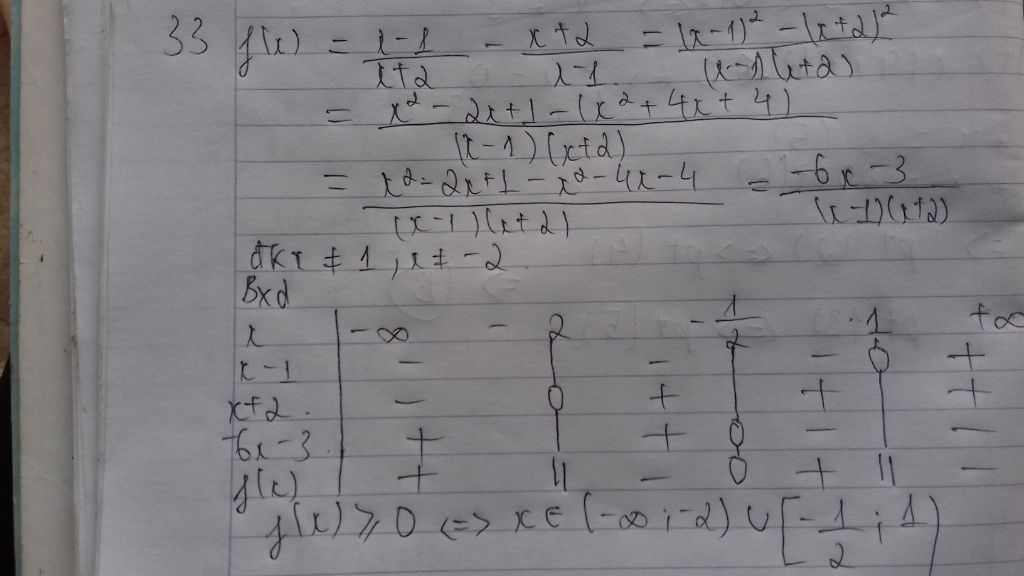 33 f(x) = \frac{x-1}{x+2} - \frac{x+2}{x-1} = \frac{(x-1)^2 - (x+2)^2}{(x-1)(x+2)}
= \frac{x^2 - 2x + 1 - (x^2 + 4x + 4)}{(x-1)(x+2)}
= \frac{x^2 - 2x + 1 - x^2 - 4x - 4}{(x-1)(x+2)} = \frac{-6x - 3}{(x-1)(x+2)}
đk x ≠ 1, x ≠ -2
Bxd
x | -∞ -2 -\frac{1}{2} 1 +∞
x-1 | - | - | - 0 +
x+2 | - 0 + | + | +
-6x-3 | + | + 0 - | -
f(x) | + || - 0 + || -
f(x) ⩾ 0 <=> x ∈ (-∞; -2) ∪ [-\frac{1}{2}; 1)